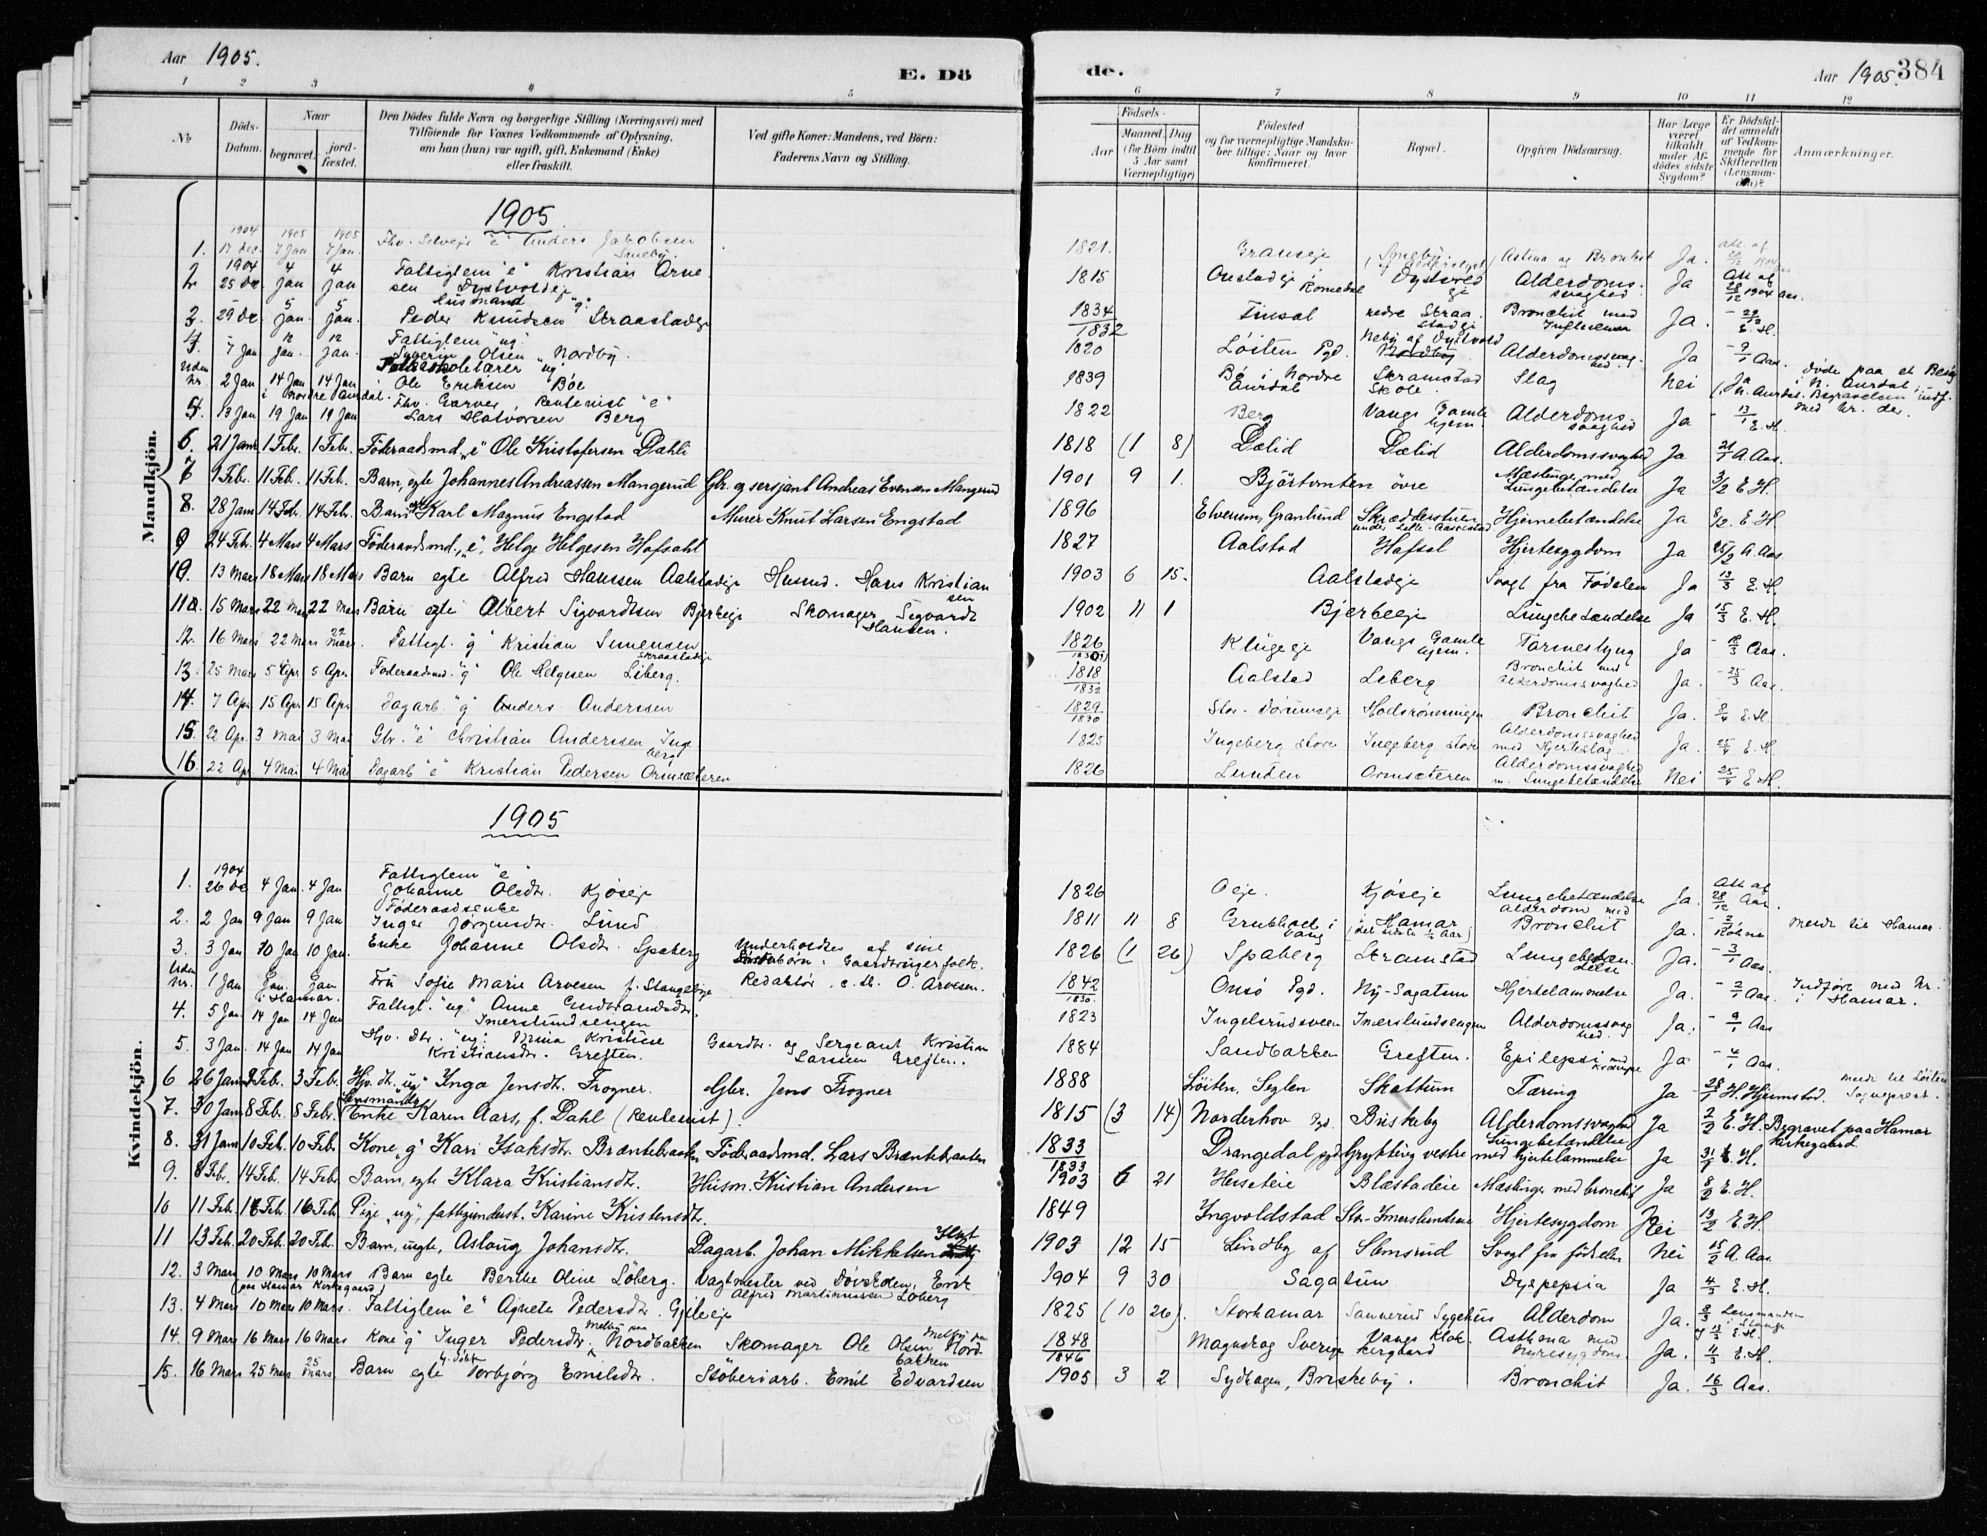 Aar 1905.
E. Dö
de.
Aar 1905.
384
1 2 3 4 5 6 7 8 9 10 11 12
No
Döds-Datum.
Naar
begravet.
jord-fæstet.
Den Dödes fulde Navn og borgerlige Stilling (Næringsvei) med
Tilföiende for Voxnes Vedkommende af Oplysning.
om han (hun) var ugift, gift, Enkemand (Enke)
eller fraskilt.
Ved gifte Koner: Mandens, ved Börn:
Faderens Navn og Stilling.
Födsels-
Aar
Maaned. Dag
(for Börn indtil
5 Aar samt
Værnepligtige)
Födested
og for værnepligtige Mandska-
ber tillige: Naar og hvor
konfirmeret.
Bopæl.
Opgiven Dödsaarsag.
Har Læge
været
tilkaldt
under Af-
dödes sidste
Sygdom?
Er Dödsfal-
det anmeldt
af Vedkom-
mende for
Skifteretten
(Lensman-
den)?
Anmærkninger.
Mandkjön.
1905
1. 1904 17 dec. 1905 7 Jan 1905 7 Jan. Fhv. Selveje "e" Anders Jakobsen 1821. Granseje Astma og Bronkit Ja.
2 1904 25 dec 4 Jan 4 Jan Fattiglem "e" Kristian Arnesen Dystvoldeje 1815 Onstadeje i Romedal Dystvoldeje Alderdomssvaghed Ja Att af 28/12 1904 Aas.
3. 29 dec. 5 Jan. 5 Jan. Husmand "g" Peder Knudsen Straastadeje 1834 1832 Finsal nedre Straastadeje Bronchit med Influenza Ja. 29/12 E. H.
7 Jan 12 Jan. 12 Jan. Fattiglem "ug" Syverin Olsen Nordby. 1820 Löiten Pgd. Alderdomssvaghed. Ja 9/1 Aas.
Uden Nr. 2 Jan 14 Jan 14 Jan i Nordre Aurdal. "ug" Ole Eriksen Böe 1839 Bö i Nordre Aurdal Skramstad Skole. Slag Nei Ja döde paa et Besög i N. Aurdal,
5. 13 Jan 19 Jan 19 Jan Fhv. Garver Rentenist "e" Lars Halvorsen Berg 1822 Berg Vangs Gamlehjem. Alderdomssvaghed Ja 13/1 E. H.
6. 21 Jan. 1 Febr. 1 Febr. Föderaadsmd. „e" Ole Kristofersen Dæhli 1818 (1 8) Dælid Dælid Alderdomssvaghed Ja 21/1 A. Aas.
7 1 Febr. 11 Feb. 11 Feb. Barn, egte Johannes Andreassen Mangerud Gbr. og sersjant Andreas Evensen Mangerud 1901 9 1. Björtomten övre Mæslinge med Lungebetændelse Ja 3/2 E. H.
8. 28 Jan. 14 Feb. 14 Feb. Barn Karl Magnus Engstad Murer Knut Larsen Engstad 1896 Elverum, Granlund Skrædderstuen Hjernebetændelse Ja E. H.
9 24 Feb. 4 Mars 4 Mars Föderaadsmd., „e", Helge Helgesen Hofsahl 1827 Aalstad Hafsal Hjertesygdom Ja 25/2 A. Aas
10. 13 Mars 18 Mars 18 Mars Barn egte Alfred Hansen Aalstadeje Husmd. Hans Kristiansen 1903 6 15. Aalstadeje Svagt fra Födslen Ja 13/3 E. H.
11. 15 Mars 22 Mars 22 Mars Barn egte Albert Sigvardtsen Bjerkeeje Skomager Sigvardt Hansen. 1902 11 1 Bjerkeeje Lungebetændelse Ja 15/3 E. H.
12. 16 Mars 22 Mars 22 Mars. Fattigl. "g" Kristian Simensen Skraastadeje 1826 Klugeje Vangs Gamlehjem. Tarmeslyng Ja 18/3 Aas.
13. 25 Mars 5 Apr. 5 Apr. Föderaadsmd. "g" Ole Helgesen Liberg. 1818 1832 Aalstad Leberg Bronchit med Alderdomssvaghed Ja. 25/3 Aas.
14. 7 Apr 15 Apr 15 Apr Dagarb. "g" Anders Anderssen 1829 1830 Bronchit Ja. 8/4 E. H.
15. 22 Apr. 3 Mai 3 Mai Gbr. "e" Christian Anderssen Ingeberg 1825 Ingeberg store Ingeberg store Alderdomssvaghed med Hjerteslag. Ja. 25/4 E. H.
16. 22 Apr 4 Mai 4 Mai Dagarb "e" Kristian Pedersen Ormseteren 1826 Lunden Ormseteren Alderdomssvaghed m. Lungebetændelse Nei 25/4 E. H.
Kvindekjön.
1905
1. 1904 26 dec 4 Jan. 4 Jan Fattiglem "e" Johanne Olsdtr. Kjöseje 1826 Oeje. Kjöseje Lungebetændelse Ja. Att af 28/12 Aas.
2. 2 Jan 9 Jan 9 Jan Föderaadsenke Inger Jörgensdtr. Lund 1811 11 8 i Vang i Hamar (det sidste ½ Aar) Alderdom med Bronchit Ja. meldt til Hamar.
3. 3 Jan 10 Jan 10 Jan. Enke Johanne Olsdtr. Spaberg Underholdes af sine : Gaardbrugerfolk. 1826 (1 26) Spaberg Stramstad Lungebetændelse Ja. 3/1 Aas.
Uden Nr. 1 Jan Jan. Jan i Hamar. Fru Sofie Marie Arvesen f. Stangebye Redaktör, c. th. O. Arvesen. 1842 Onsö Pgd. Ny-Sagatun Hjertelammelse Ja. 2/1 Aas. Indföres med Nr. i Hamar.
4. 5 Jan. 14 Jan 14 Jan Fattigl. "ug" Anne Gudbrandsdtr. Imerslundsengen 1823 Ingelsrudsveen Imerslundsengen Alderdomssvaghed. Ja. 9/1 Aas
5. 3 Jan. 14 Jan 14 Jan Hjv. Dtr. "ug" Kristine Kristiansdtr. Greften. Gaardbr. og Sergeant Kristian Larsen Greften. 1884 Sandbakken Greften. Epilepsi med Krampe Ja 4/1 Aas.
6 26 Jan. 3 Feb. 3 Feb. Hjv. dt. „ug" Inga Jensdt. Frogner. Gbr. Jens Frogner 1888 Löiten, Seglen Skattum Tæring Ja 28/1 H. Hjermstad. meldt til Löiten Sogneprest.
7. 30 Jan. 8 Feb. 8 Feb. Lensmands Enke Karen Aars, f. Dahl (Rentenist). 1815 (3 14) Norderhov Pgd Briskeby Alderdomssvaghed Ja 2/2 E. H. Begravet paa Hamar kirkegaard.
8. 31 Jan. 10 Feb. 10 Feb. Kone „g" Kari Isaksdt. Brænnebraaten Föderaadsmd. Lars Brænnebraaten 1833 1833 Drangedal, pgd Grytting vestre Lungebetændelse med hjertelammelse Ja 31/1 E. H.
9. 8 Feb. 14 Feb. 14 Feb. Barn, egte Klara Kristiansdt. Husm. Kristian Andersen 1903 6 21 Huseteie Blæstadeie Mæslinger med bronchit Ja 8/2 E. H.
10 11 Feb. 16 Feb. 16 Feb. Pige „ug", fattigunderst. Karine Kristensdt. 1849 Ingvoldstad Stor-Imerslundseie Hjertesygdom Nei 13/2 E. H.
11 13 Feb. 20 Feb. 20 Feb. Barn, uegte, Aslaug Johansdt. Dagarb. Johan Mikkelsen 1903 12 15 Lindby af Slemsrud Svagt fra födselen Nei 15/2 A. Aas.
12. 3 Mars 10 Mars 10 Mars (paa Hamar Kirkegaard) Barn egte Berthe Oline Löberg. Vagtmester ved Dövskolen, Emil Alfred Martiniussen Löberg 1904 9 30 Sagatun Dyspepsia Ja 4/3 E. H.
13. 4 Mars 10 Mars 10 Mars. Fattiglem "e" Agnete Pedersdtr. 1825 (10 26). Storhamar Sannerud Sygehus Alderdom Ja. Lensmanden i Stange
14. 9 Mars 16 Mars 16 Mars Kone "g" Inger Pedersdtr. Nordbakken Skomager Ole Olsen Nordbakken 1848 1846 Magnskog Sverige Vangs Klokkergaard Asthma med Nyresygdom Ja. 11/3 E. H.
15. 16 Mars 25 Mars 25 Mars Barn egte Torbjörg Emilsdtr. Stöberiarb. Emil Edvardsen 1905 3 2 Sydhagen, Briskeby. Bronchit Ja. 16/3 Aas.